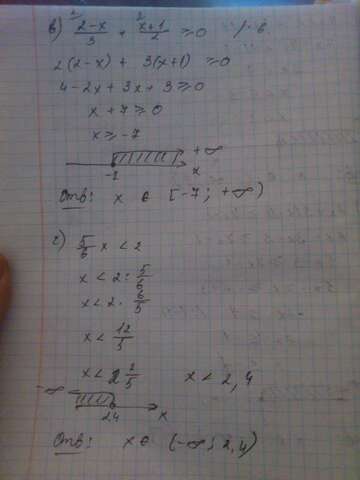 в) 2-x/3 + x+1/2 ≥ 0 /·6
2(2-x) + 3(x+1) ≥ 0
4-2x+3x+3 ≥ 0
x+7 ≥ 0
x ≥ -7
+∞
-7 x
Отв: x ∈ [-7; +∞)
г) 5/6 x < 2
x < 2 : 5/6
x < 2 · 6/5
x < 12/5
x < 2 2/5 x < 2,4
-∞
2,4 x
Отв: x ∈ (-∞; 2,4)